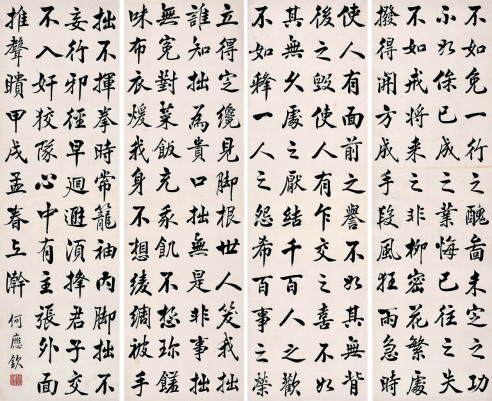 不如免一行之醜啚未定之功
不如保已成之業悔已往之失
不如戒将来之非柳密花繁處
撥得開方成手段風狂雨急時
使人有面前之譽不如其無背
後之毀使人有乍交之喜不如
其無久處之厭結千百人之歡
不如釋一人之怨希百事之榮
立得定纔見脚根世人笑我拙
誰知拙為貴口拙無是非事拙
無寃對菜飯充我飢不想珍饈
味布衣煖我身不想綾綢被手
拙不揮拳時常籠袖内脚拙不
妄行邪徑早迴避須擇君子交
不入奸狡隊心中有主張外面
推聾瞶甲戌孟春上澣 何應欽